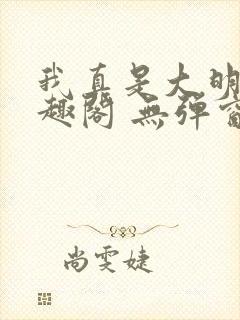 我真是大明
趣阁 無弹窗
尚雯婕